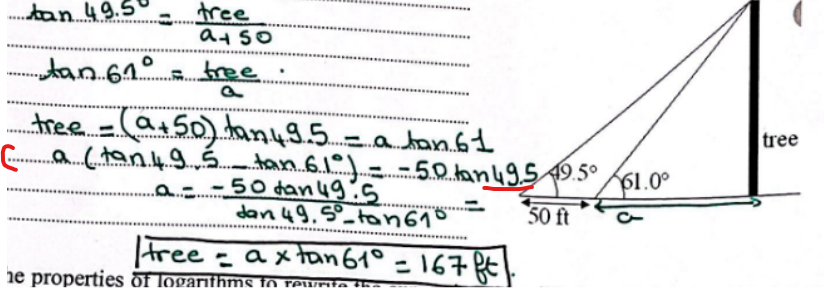 tan 49.5° = tree / a+50
tan 61° = tree / a .
tree = (a+50) tan 49.5 = a tan 61
a (tan 49.5 - tan 61°) = -50 tan 49.5
a = -50 tan 49.5 / tan 49.5° - tan 61° =
tree = a x tan 61° = 167 ft .
49.5° 61.0°
tree
50 ft a
he properties of logarithms to rewrite the